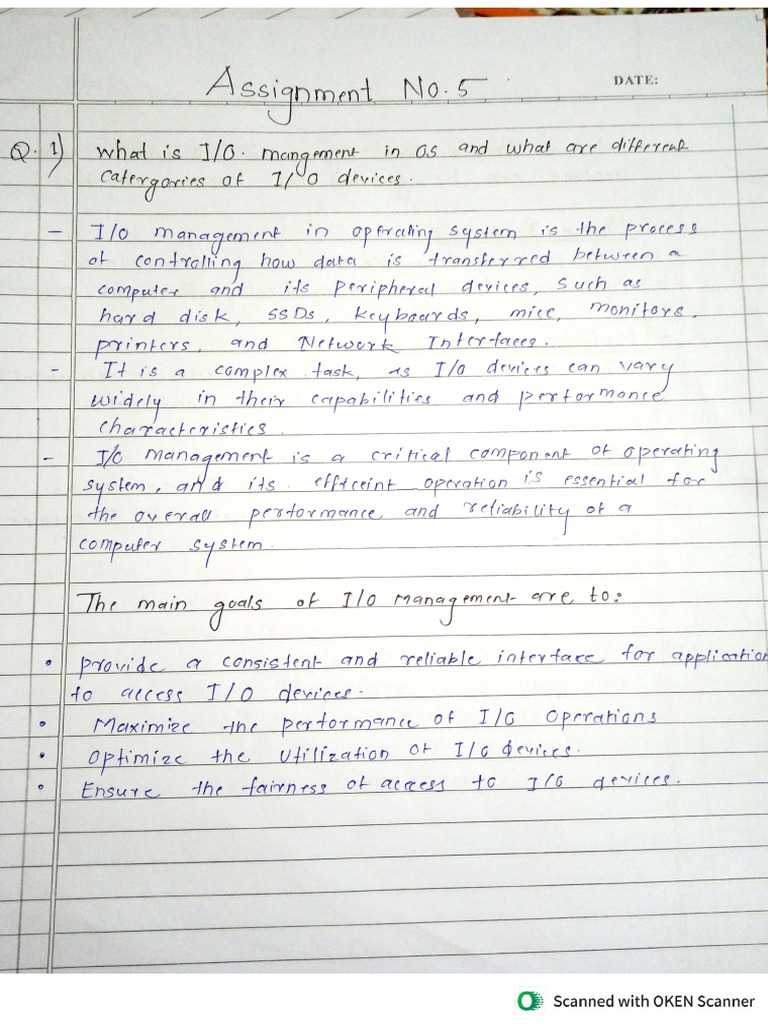 Assignment No. 5
DATE:
Q. 1) What is I/O. mangement in OS and what are different
catergories of I/O devices.
- I/O management in operating system is the process
of controlling how data is transferred between a
computer and its peripheral devices, such as
hard disk, SSDs, keyboards, mice, monitors,
printers, and Network Interfaces.
- It is a complex task, as I/O devices can vary
widely in their capabilities and performance
characteristics.
- I/O management is a critical component of operating
system, and its efficeint operation is essential for
the overall performance and reliability of a
computer system.
The main goals of I/O management are to:
• provide a consistent and reliable interface for application
to access I/O devices.
• Maximize the performance of I/O Operations
• Optimize the Utilization of I/O devices.
• Ensure the fairness of access to I/O devices.
Scanned with OKEN Scanner